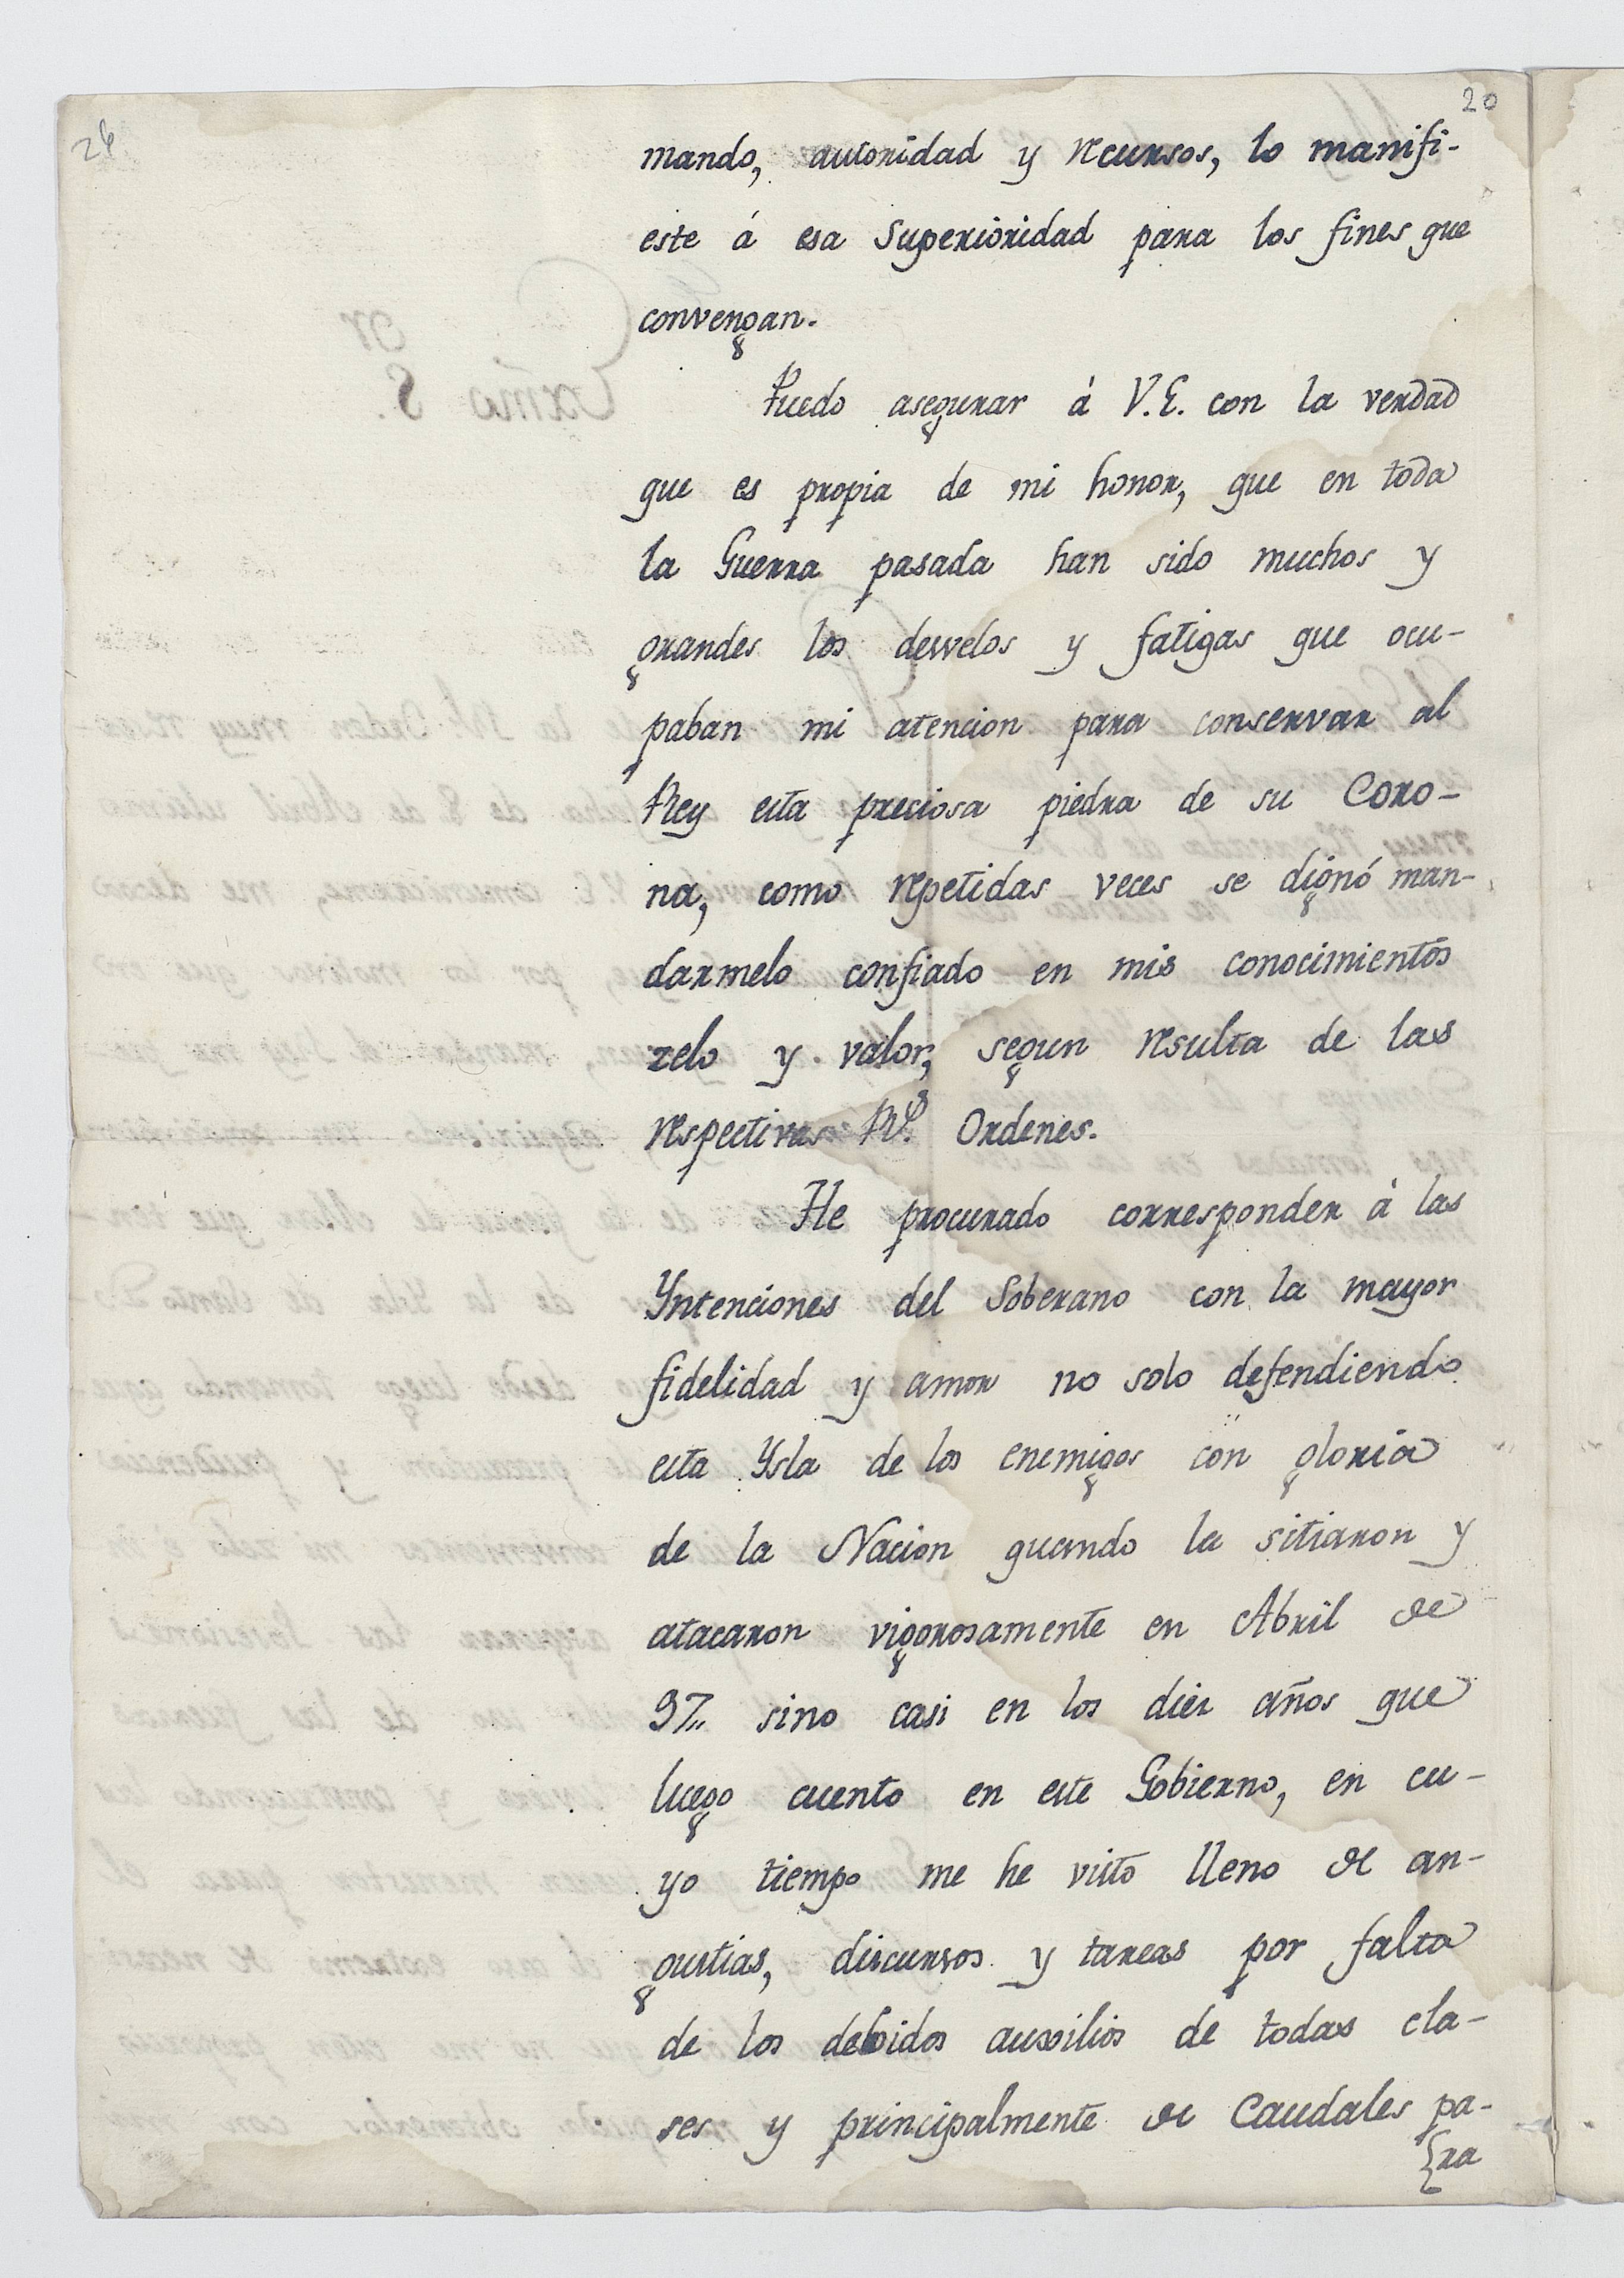 26
20
mando, autoridad y recursos, lo manifi-
este á esa Superioridad para los fines que
convengan.
Puedo asegurar á V.E. con la verdad
que es propia de mi honor, que en toda
la Guerra pasada han sido muchos y
grandes los desvelos y fatigas que ocu-
paban mi atencion para conservar al
Rey esta preciosa piedra de su Coro-
na, como repetidas veces se dignó man-
darmelo confiado en mis conocimientos
zelo y valor, segun resulta de las
respectivas Rs. Ordenes.
He procurado corresponder á las
Yntenciones del Soberano con la mayor
fidelidad y amor no solo defendiendo
esta Ysla de los enemigos con gloria
de la Nacion quando la sitiaron y
atacaron vigorosamente en Abril de
97,, sino casi en los diez años que
luego cuento en este Gobierno, en cu-
yo tiempo me he visto lleno de an-
gustias, discursos y tareas por falta
de los debidos auxilios de todas cla-
ses y principalmente de Caudales pa-
ra